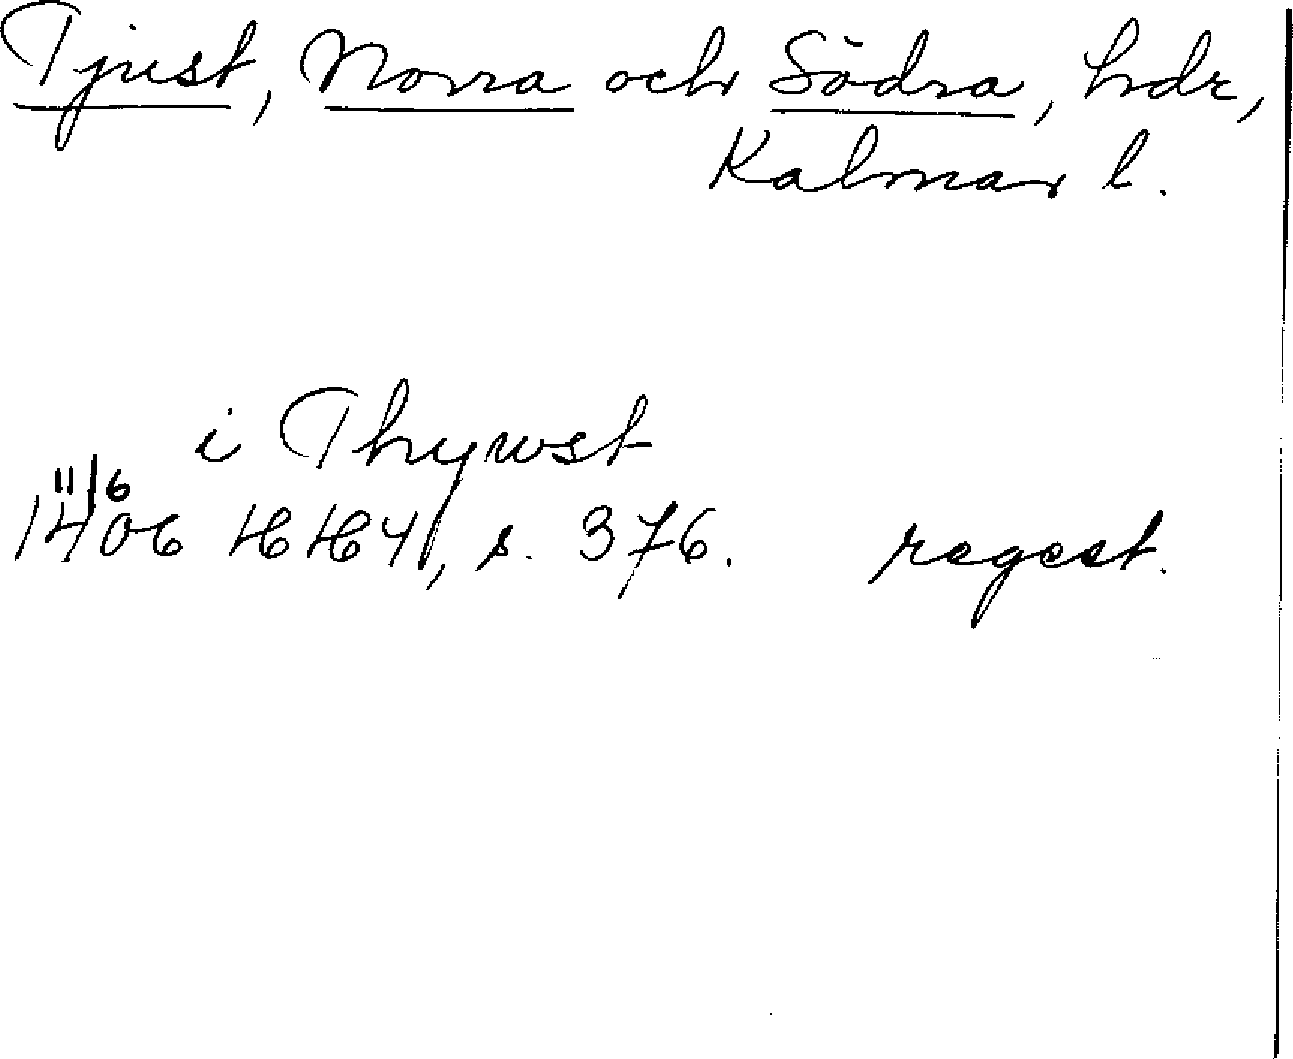 Tjust, Norra och Södra, hdr,
Kalmar l.
i Thywst
11/6
1406 HH 41, s. 376. regest.